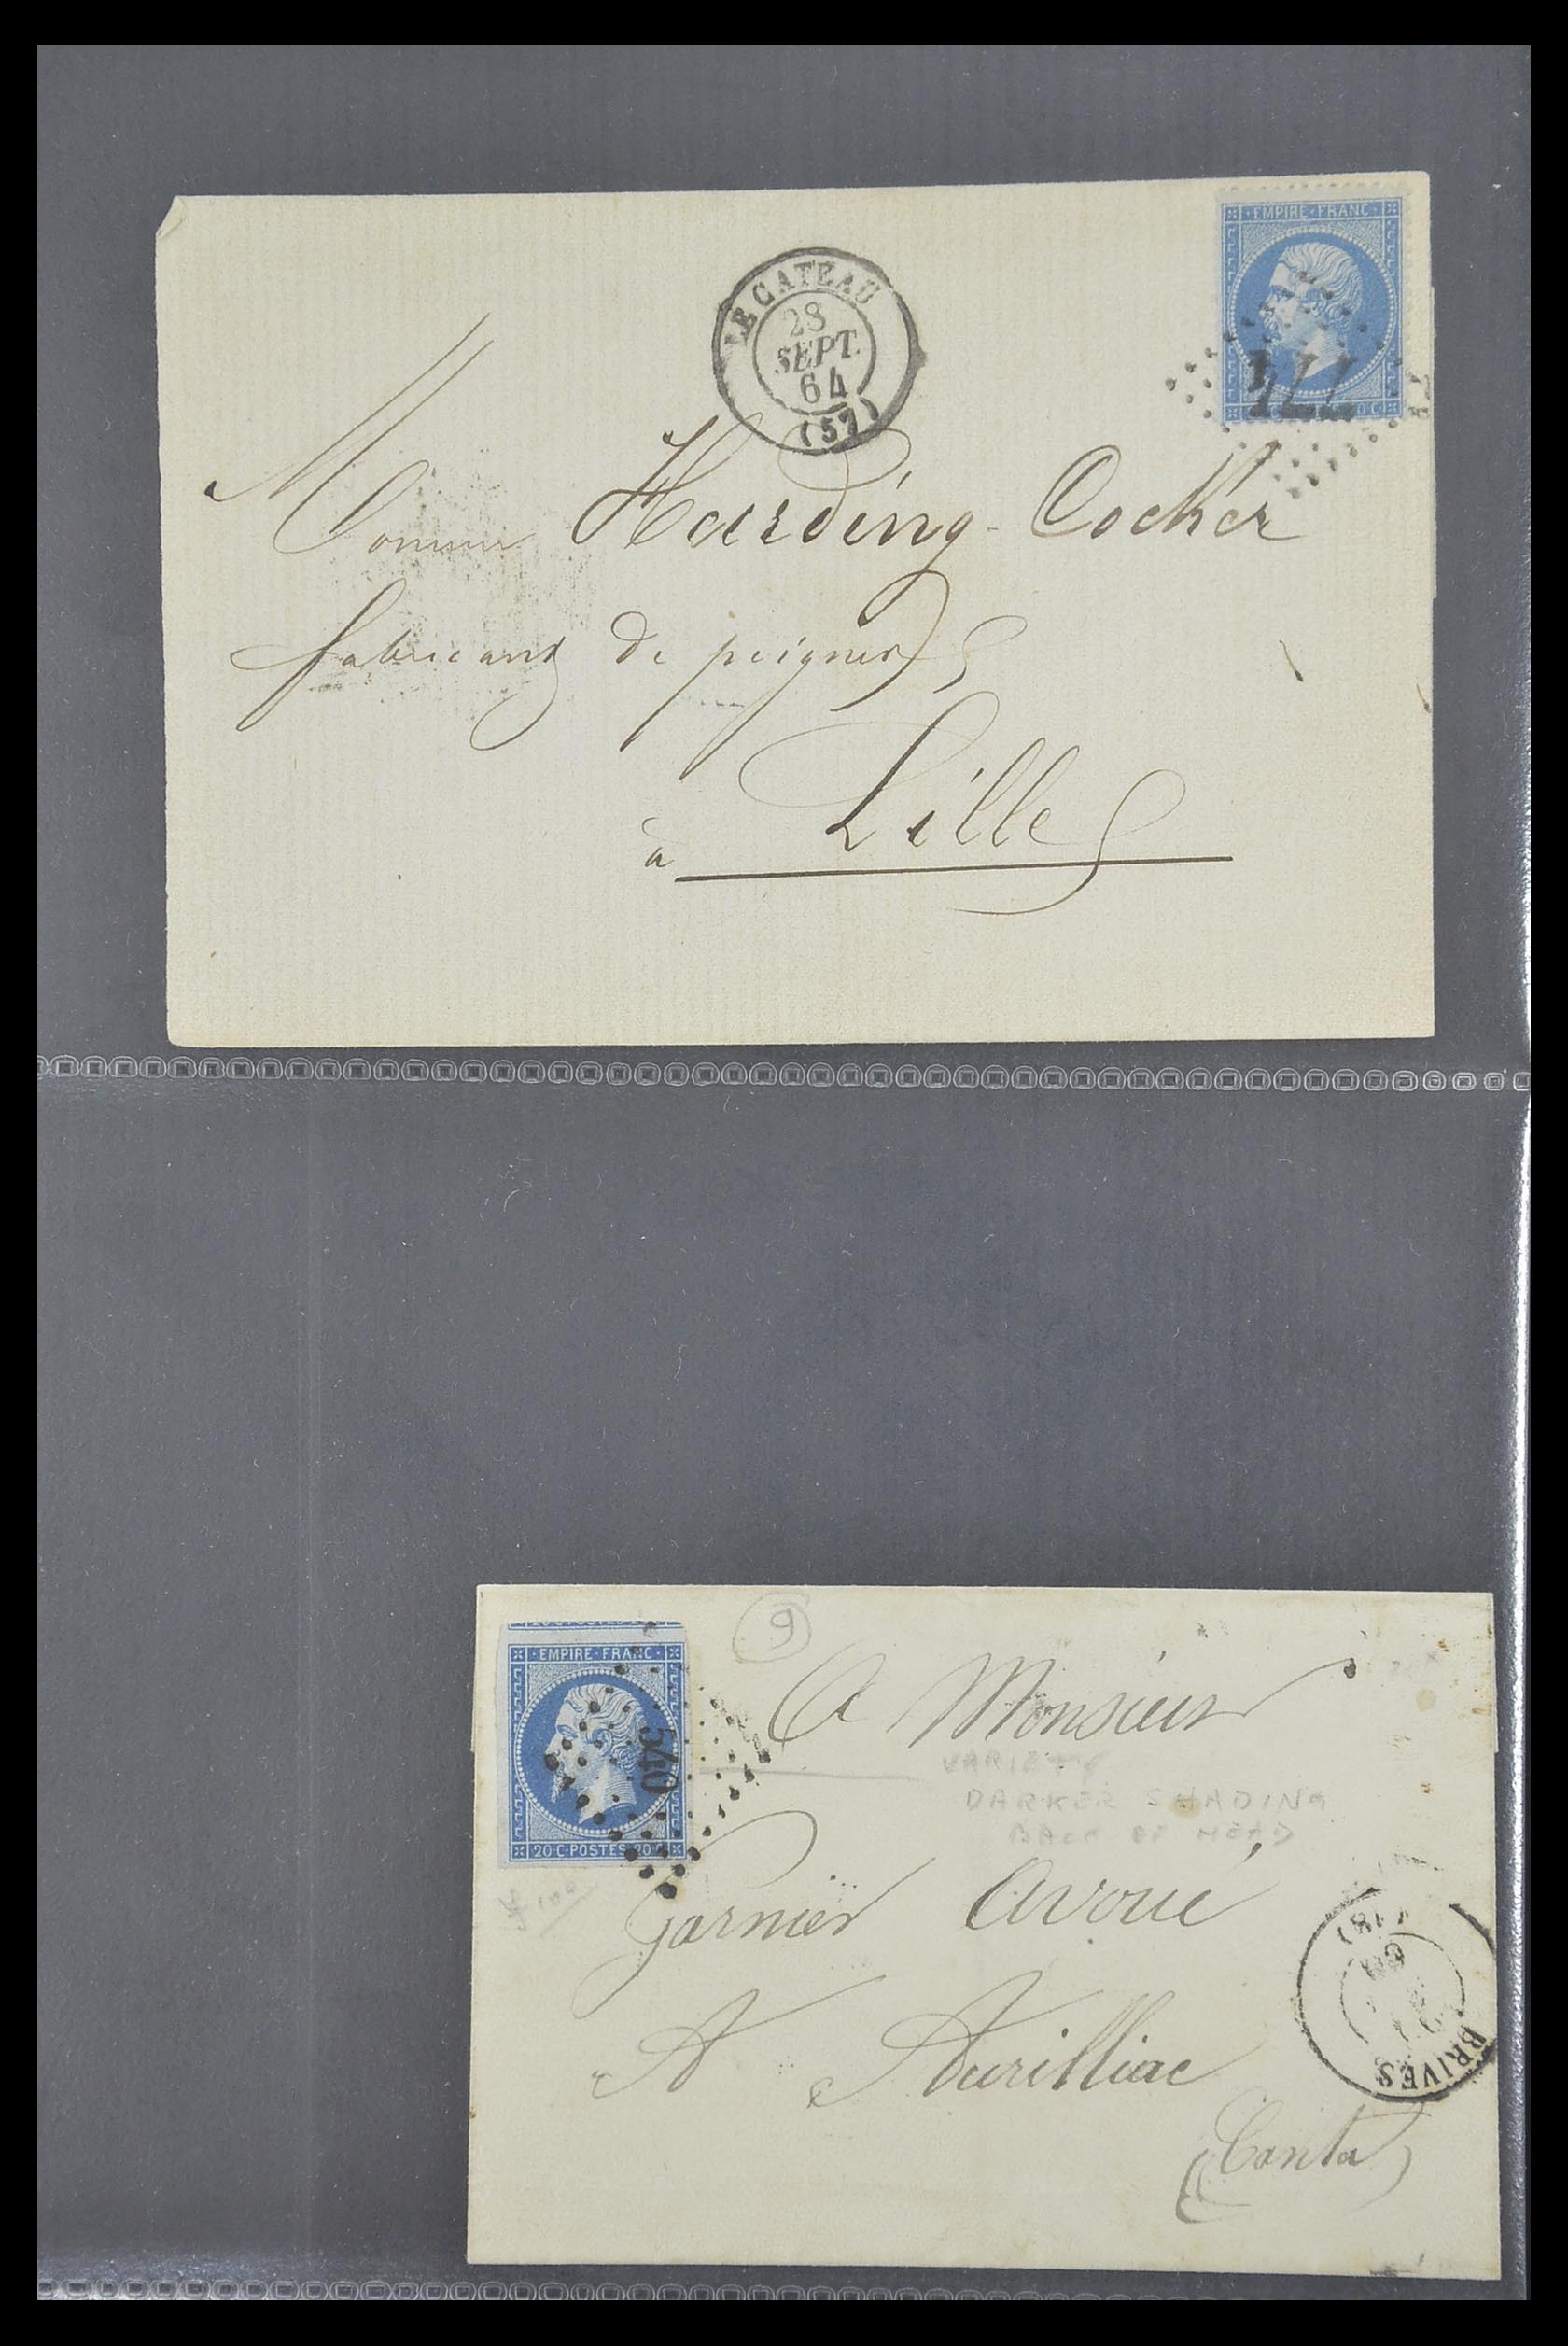 EMPIRE·FRANC·
LE CATEAU
28
SEPT.
64
(57)
Monsieur Harding-Cocker
fabricant de peignes
à Lille
9
EMPIRE·FRANC·
540
20·C·POSTES·20·C
A Monsieur
VARIETY
DARKER SHADING
BACK OF HEAD
Garnier Avoué
A Aurilliac
(Cantal)
BRIVES
(18)